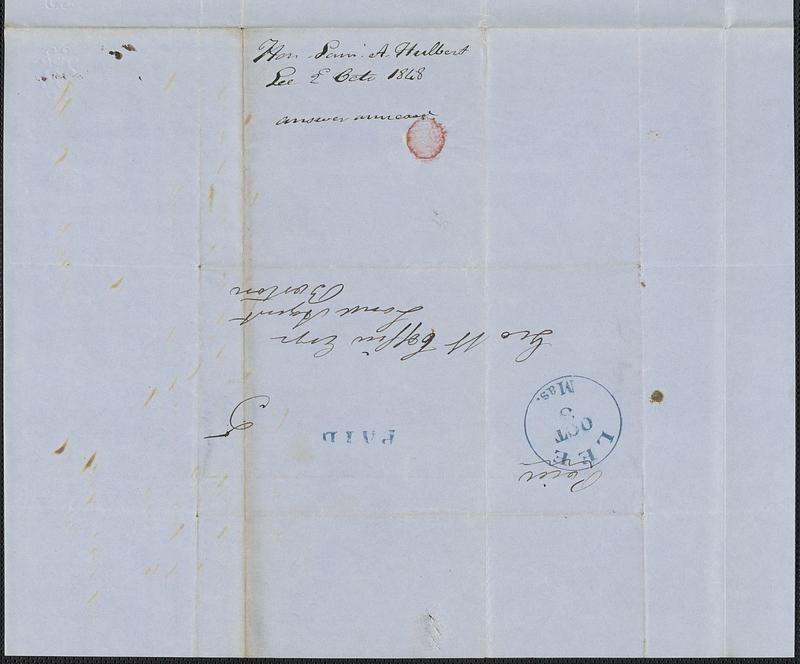 Hon. Sam. A. Hulbert
Lee 2 Octo 1848
answer annexed
Geo W Coffin Esqr
Land Agent
Boston
PAID
5
LEE
OCT
3
Mas.